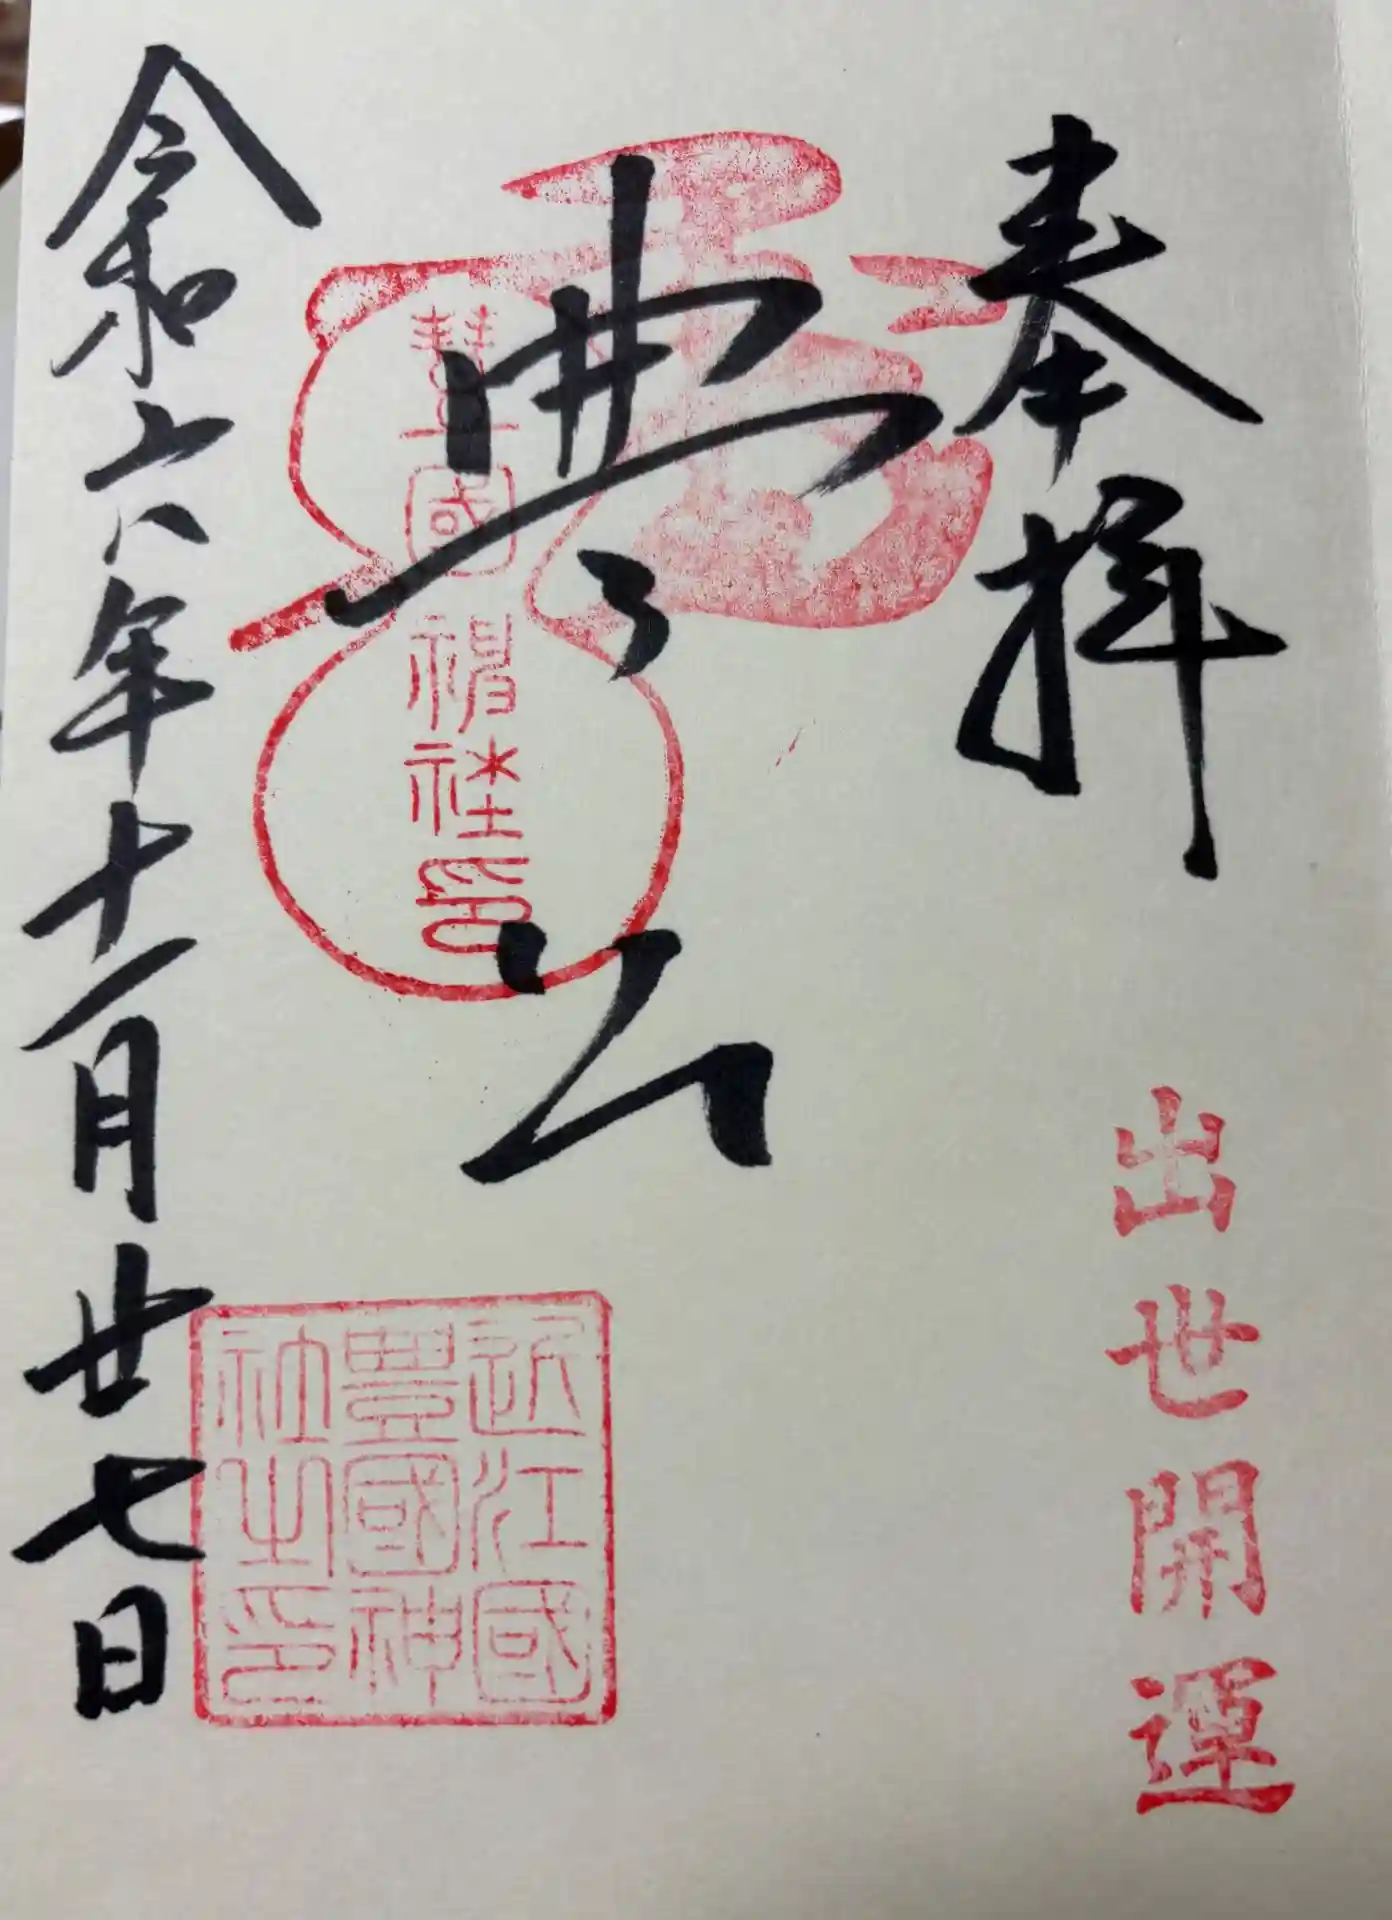 奉拝
出世開運
豊公
豐國神社印
近江國
豊國神
社之印
令和六年十一月廿七日